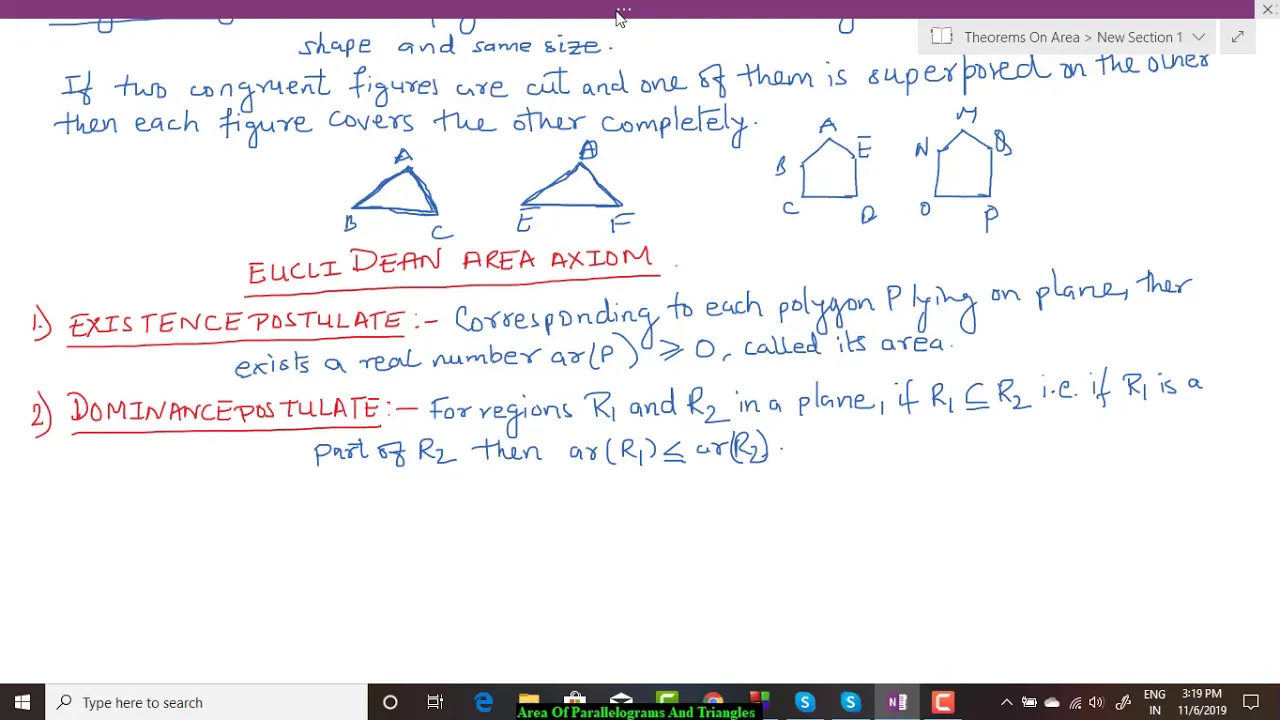 Theorems On Area > New Section 1
shape and same size.
If two congruent figures are cut and one of them is superposed on the other
then each figure covers the other completely.
A
B
C
D
E
F
A
B
E
C
D
M
N
Q
O
P
EUCLIDEAN AREA AXIOM
1.) EXISTENCE POSTULATE :- Corresponding to each polygon P lying on plane, ther
exists a real number ar(P) ⩾ 0, called its area.
2) DOMINANCE POSTULATE :- For regions R1 and R2 in a plane, if R1 ⊆ R2 i.e. if R1 is a
part of R2 then ar(R1) ≤ ar(R2).
Type here to search
ENG
IN
3:19 PM
11/6/2019
Area Of Parallelograms And Triangles